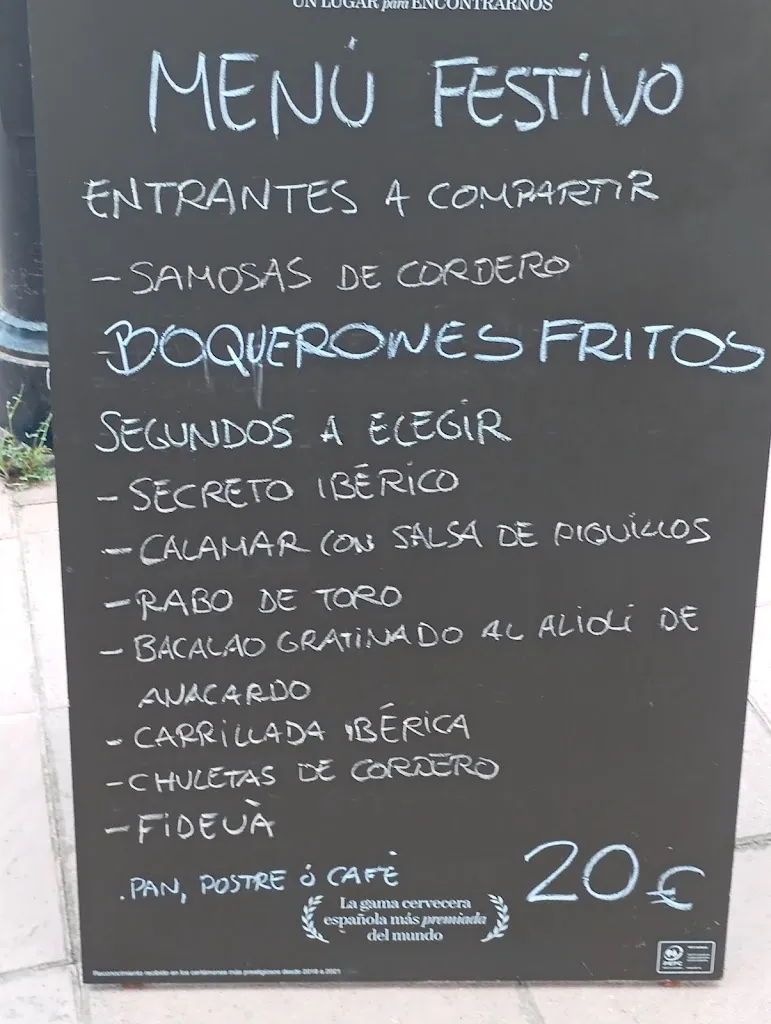 UN LUGAR para ENCONTRARNOS
MENÚ FESTIVO
ENTRANTES A COMPARTIR
- SAMOSAS DE CORDERO
- BOQUERONES FRITOS
SEGUNDOS A ELEGIR
- SECRETO IBÉRICO
- CALAMAR CON SALSA DE PIQUILLOS
- RABO DE TORO
- BACALAO GRATINADO AL ALIOLI DE
ANACARDO
- CARRILLADA IBÉRICA
- CHULETAS DE CORDERO
- FIDEUÀ
.PAN, POSTRE Ó CAFÉ
20 €
La gama cervecera
española más premiada
del mundo
Reconocimiento recibido en los certámenes más prestigiosos desde 2018 a 2021
PEFC